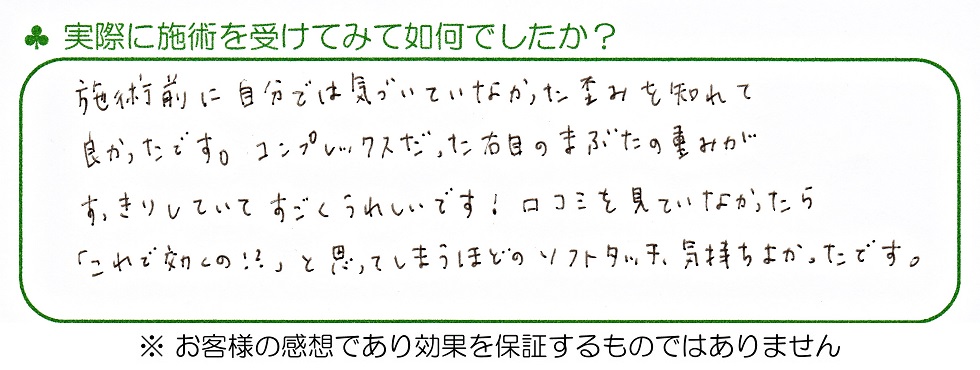 ♣ 実際に施術を受けてみて如何でしたか？
施術前に自分では気づいていなかった歪みを知れて
良かったです。コンプレックスだった右目のまぶたの重みが
すっきりしていてすごくうれしいです！口コミを見ていなかったら
「これで効くの!?」と思ってしまうほどのソフトタッチ、気持ちよかったです。
※ お客様の感想であり効果を保証するものではありません